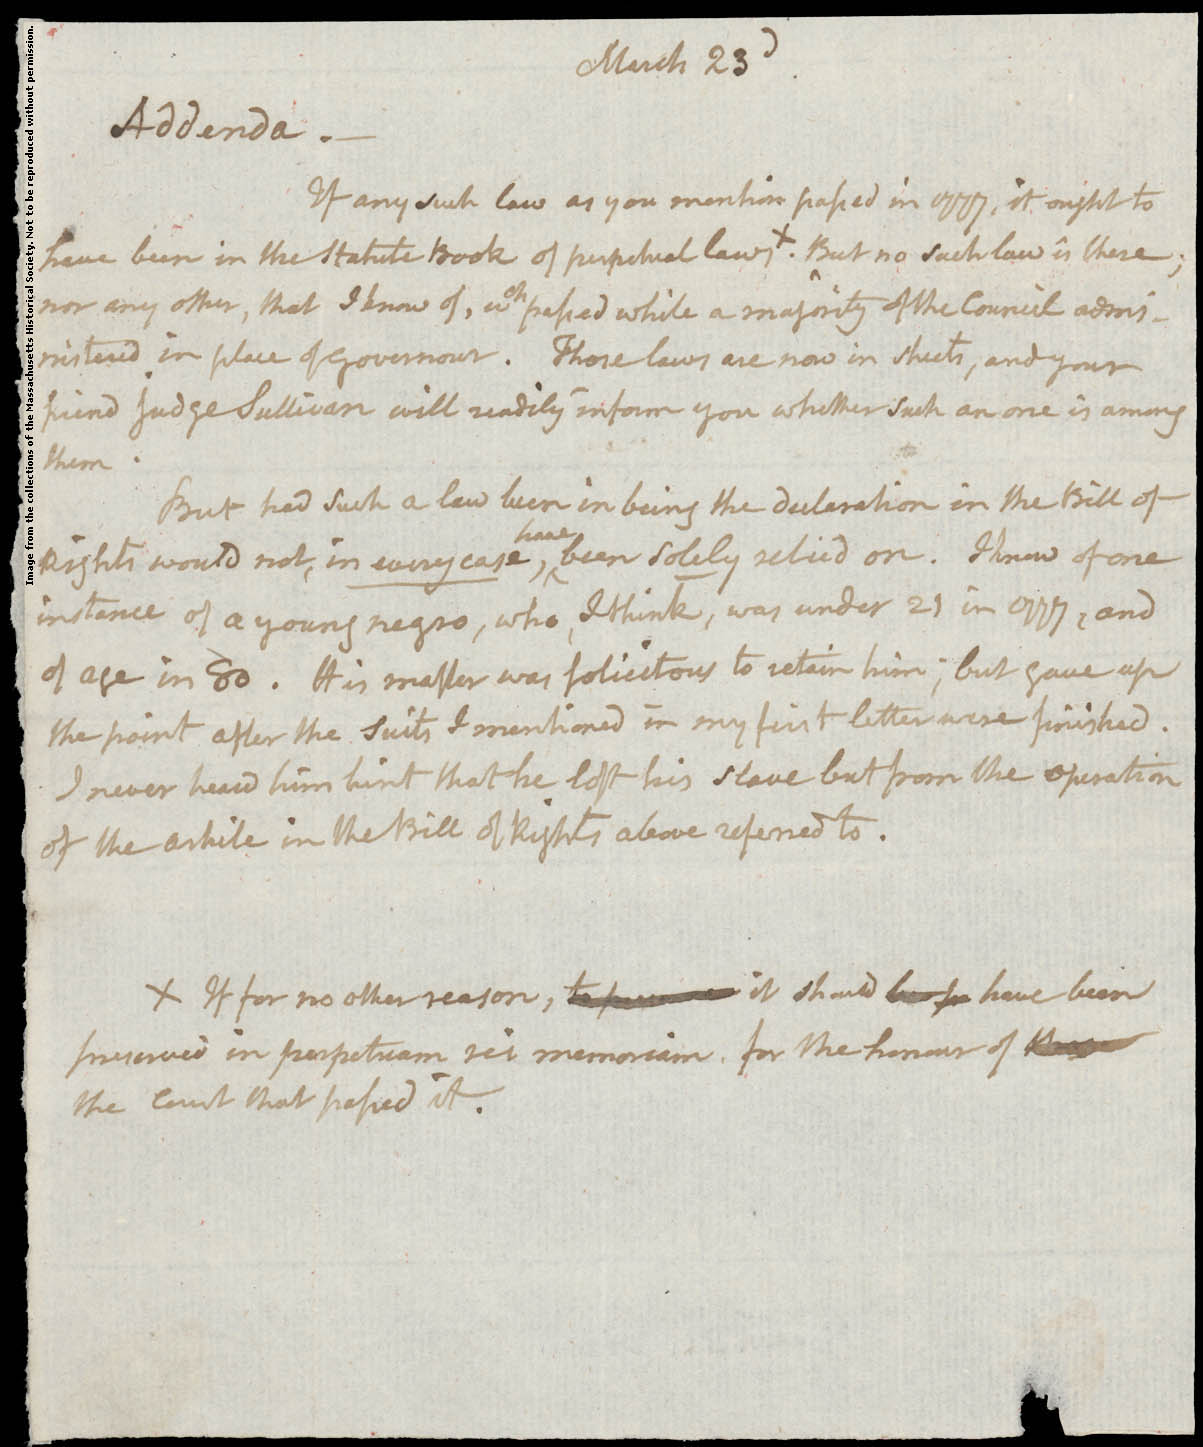 Image from the collections of the Massachusetts Historical Society. Not to be reproduced without permission.
March 23d.
Addenda. —
If any such law as you mention passed in 1777, it ought to
have been in the Statute Book of perpetual laws X. But no such law is there;
nor any other, that I know of, wch passed while a majority of the Council admi-
nistered in place of Governour. Those laws are now in sheets, and your
friend Judge Sullivan will readily inform you whether such an one is among
them.
But had such a law been in being the declaration in the Bill of
Rights would not, in every case, have been solely relied on. I knew of one
instance of a young negro, who, I think, was under 21 in 1777, and
of age in 80. His master was solicitous to retain him; but gave up
the point after the suits I mentioned in my first letter were finished.
I never heard him hint that he lost his slave but from the operation
of the article in the Bill of Rights above referred to.
X If for no other reason, it should have been
preserved in perpetuam rei memoriam, for the honour of
the Court that passed it.